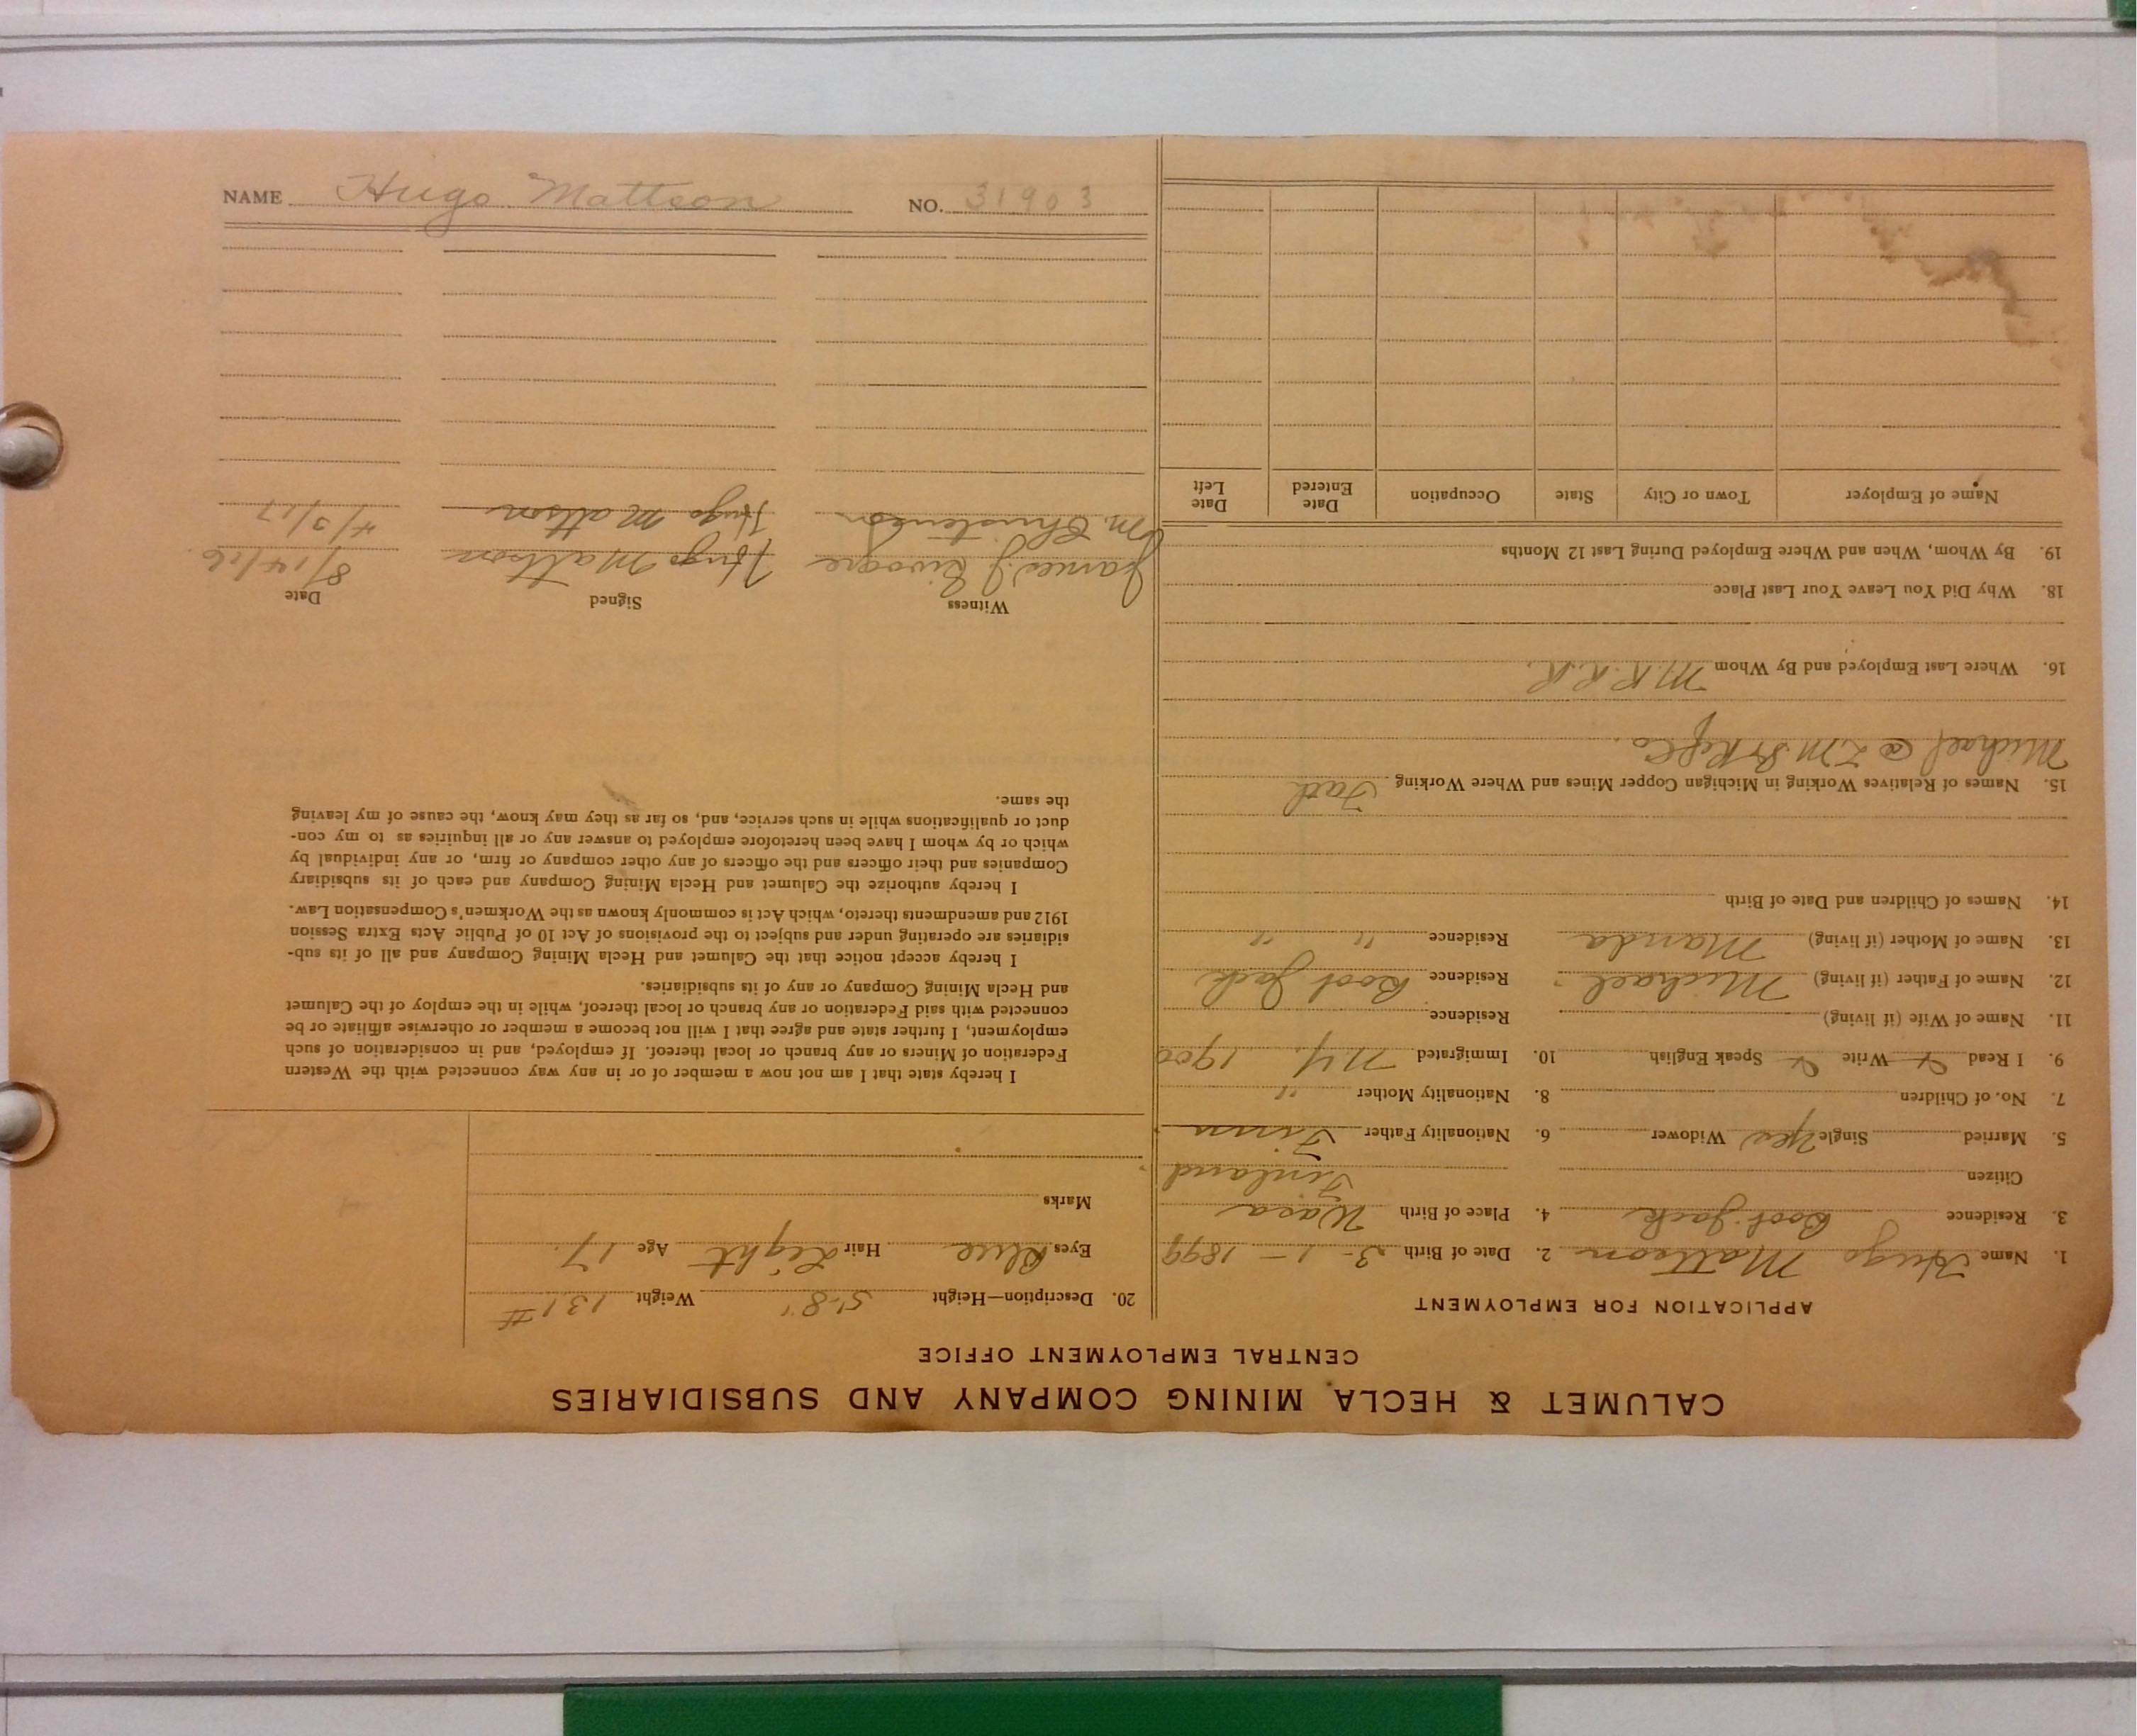 CALUMET & HECLA MINING COMPANY AND SUBSIDIARIES
CENTRAL EMPLOYMENT OFFICE
APPLICATION FOR EMPLOYMENT
1. Name Hugo Mattson 2. Date of Birth 3-1-1899
3. Residence Boot Jack 4. Place of Birth Wasa
Citizen Finland
5. Married Single Yes Widower 6. Nationality Father Finn
7. No. of Children 8. Nationality Mother "
9. I Read Write Speak English 10. Immigrated N.Y. 1900
11. Name of Wife (if living) Residence
12. Name of Father (if living) Michael Residence Boot Jack
13. Name of Mother (if living) Manda Residence " "
14. Names of Children and Date of Birth
15. Names of Relatives Working in Michigan Copper Mines and Where Working Fath
Michael @ L M S & Rfg Co.
16. Where Last Employed and By Whom M.R.R.R.
18. Why Did You Leave Your Last Place
19. By Whom, When and Where Employed During Last 12 Months
Name of Employer Town or City State Occupation Date Entered Date Left
20. Description—Height 5'-8" Weight 131 #
Eyes Blue Hair Light Age 17.
Marks
I hereby state that I am not now a member of or in any way connected with the Western
Federation of Miners or any branch or local thereof. If employed, and in consideration of such
employment, I further state and agree that I will not become a member or otherwise affiliate or be
connected with said Federation or any branch or local thereof, while in the employ of the Calumet
and Hecla Mining Company or any of its subsidiaries.
I hereby accept notice that the Calumet and Hecla Mining Company and all of its sub-
sidiaries are operating under and subject to the provisions of Act 10 of Public Acts Extra Session
1912 and amendments thereto, which Act is commonly known as the Workmen's Compensation Law.
I hereby authorize the Calumet and Hecla Mining Company and each of its subsidiary
Companies and their officers and the officers of any other company or firm, or any individual by
which or by whom I have been heretofore employed to answer any or all inquiries as to my con-
duct or qualifications while in such service, and, so far as they may know, the cause of my leaving
the same.
Witness Signed Date
James J. Hugo Mattson 8/14/16
M. Christenson Hugo Mattson 4/3/17
NAME Hugo Mattson NO. 31903